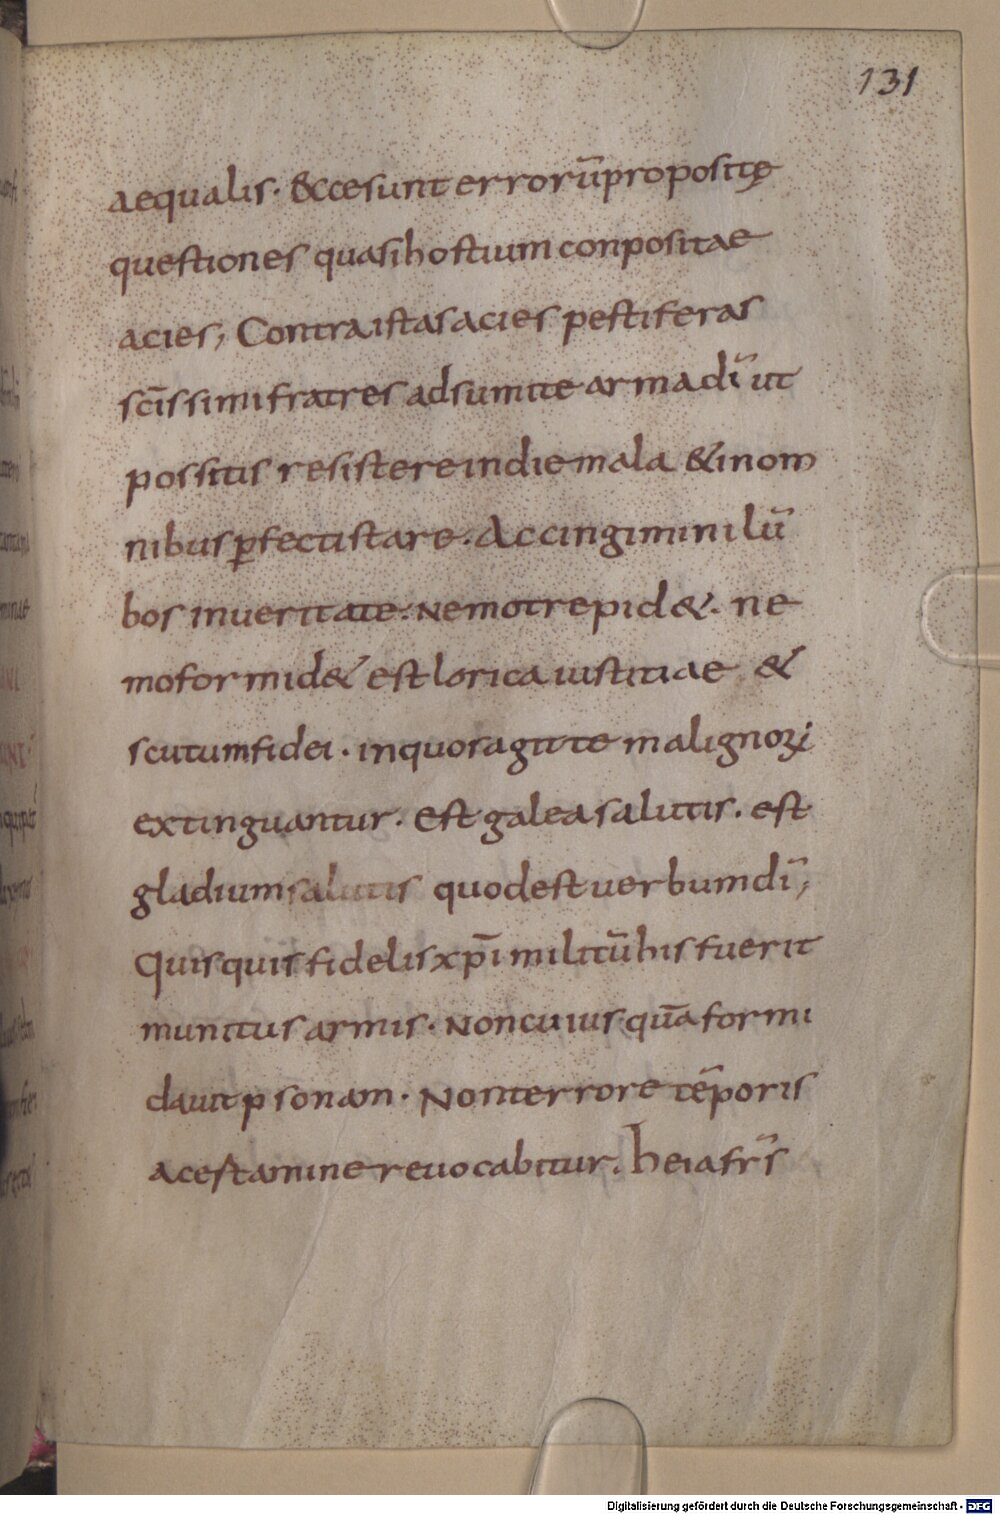 131
aequalis · &ccesunt errorū propositę
questiones quasi hostium conpositae
acies; Contra istas acies pestiferas
scīssimi fratres adsumite arma dī ut
possitis resistere in die mala & in om
nibus ꝑfecti stare. Accingimini lū
bos in ueritate. Nemo trepid&. ne
mo formid& est lorica iustitiae &
scutum fidei · in quo sagitte malignoꝝ
extinguantur. Est galea salutis. est
gladium salutis quod est uerbum dī;
Quisquis fidelis xp̄i militū his fuerit
munitus armis. Non cuiusquā formi
dauit ꝑsonam. Non terrore tēporis
a certamine reuocabitur. heia fr̄s
Digitalisierung gefördert durch die Deutsche Forschungsgemeinschaft - DFG